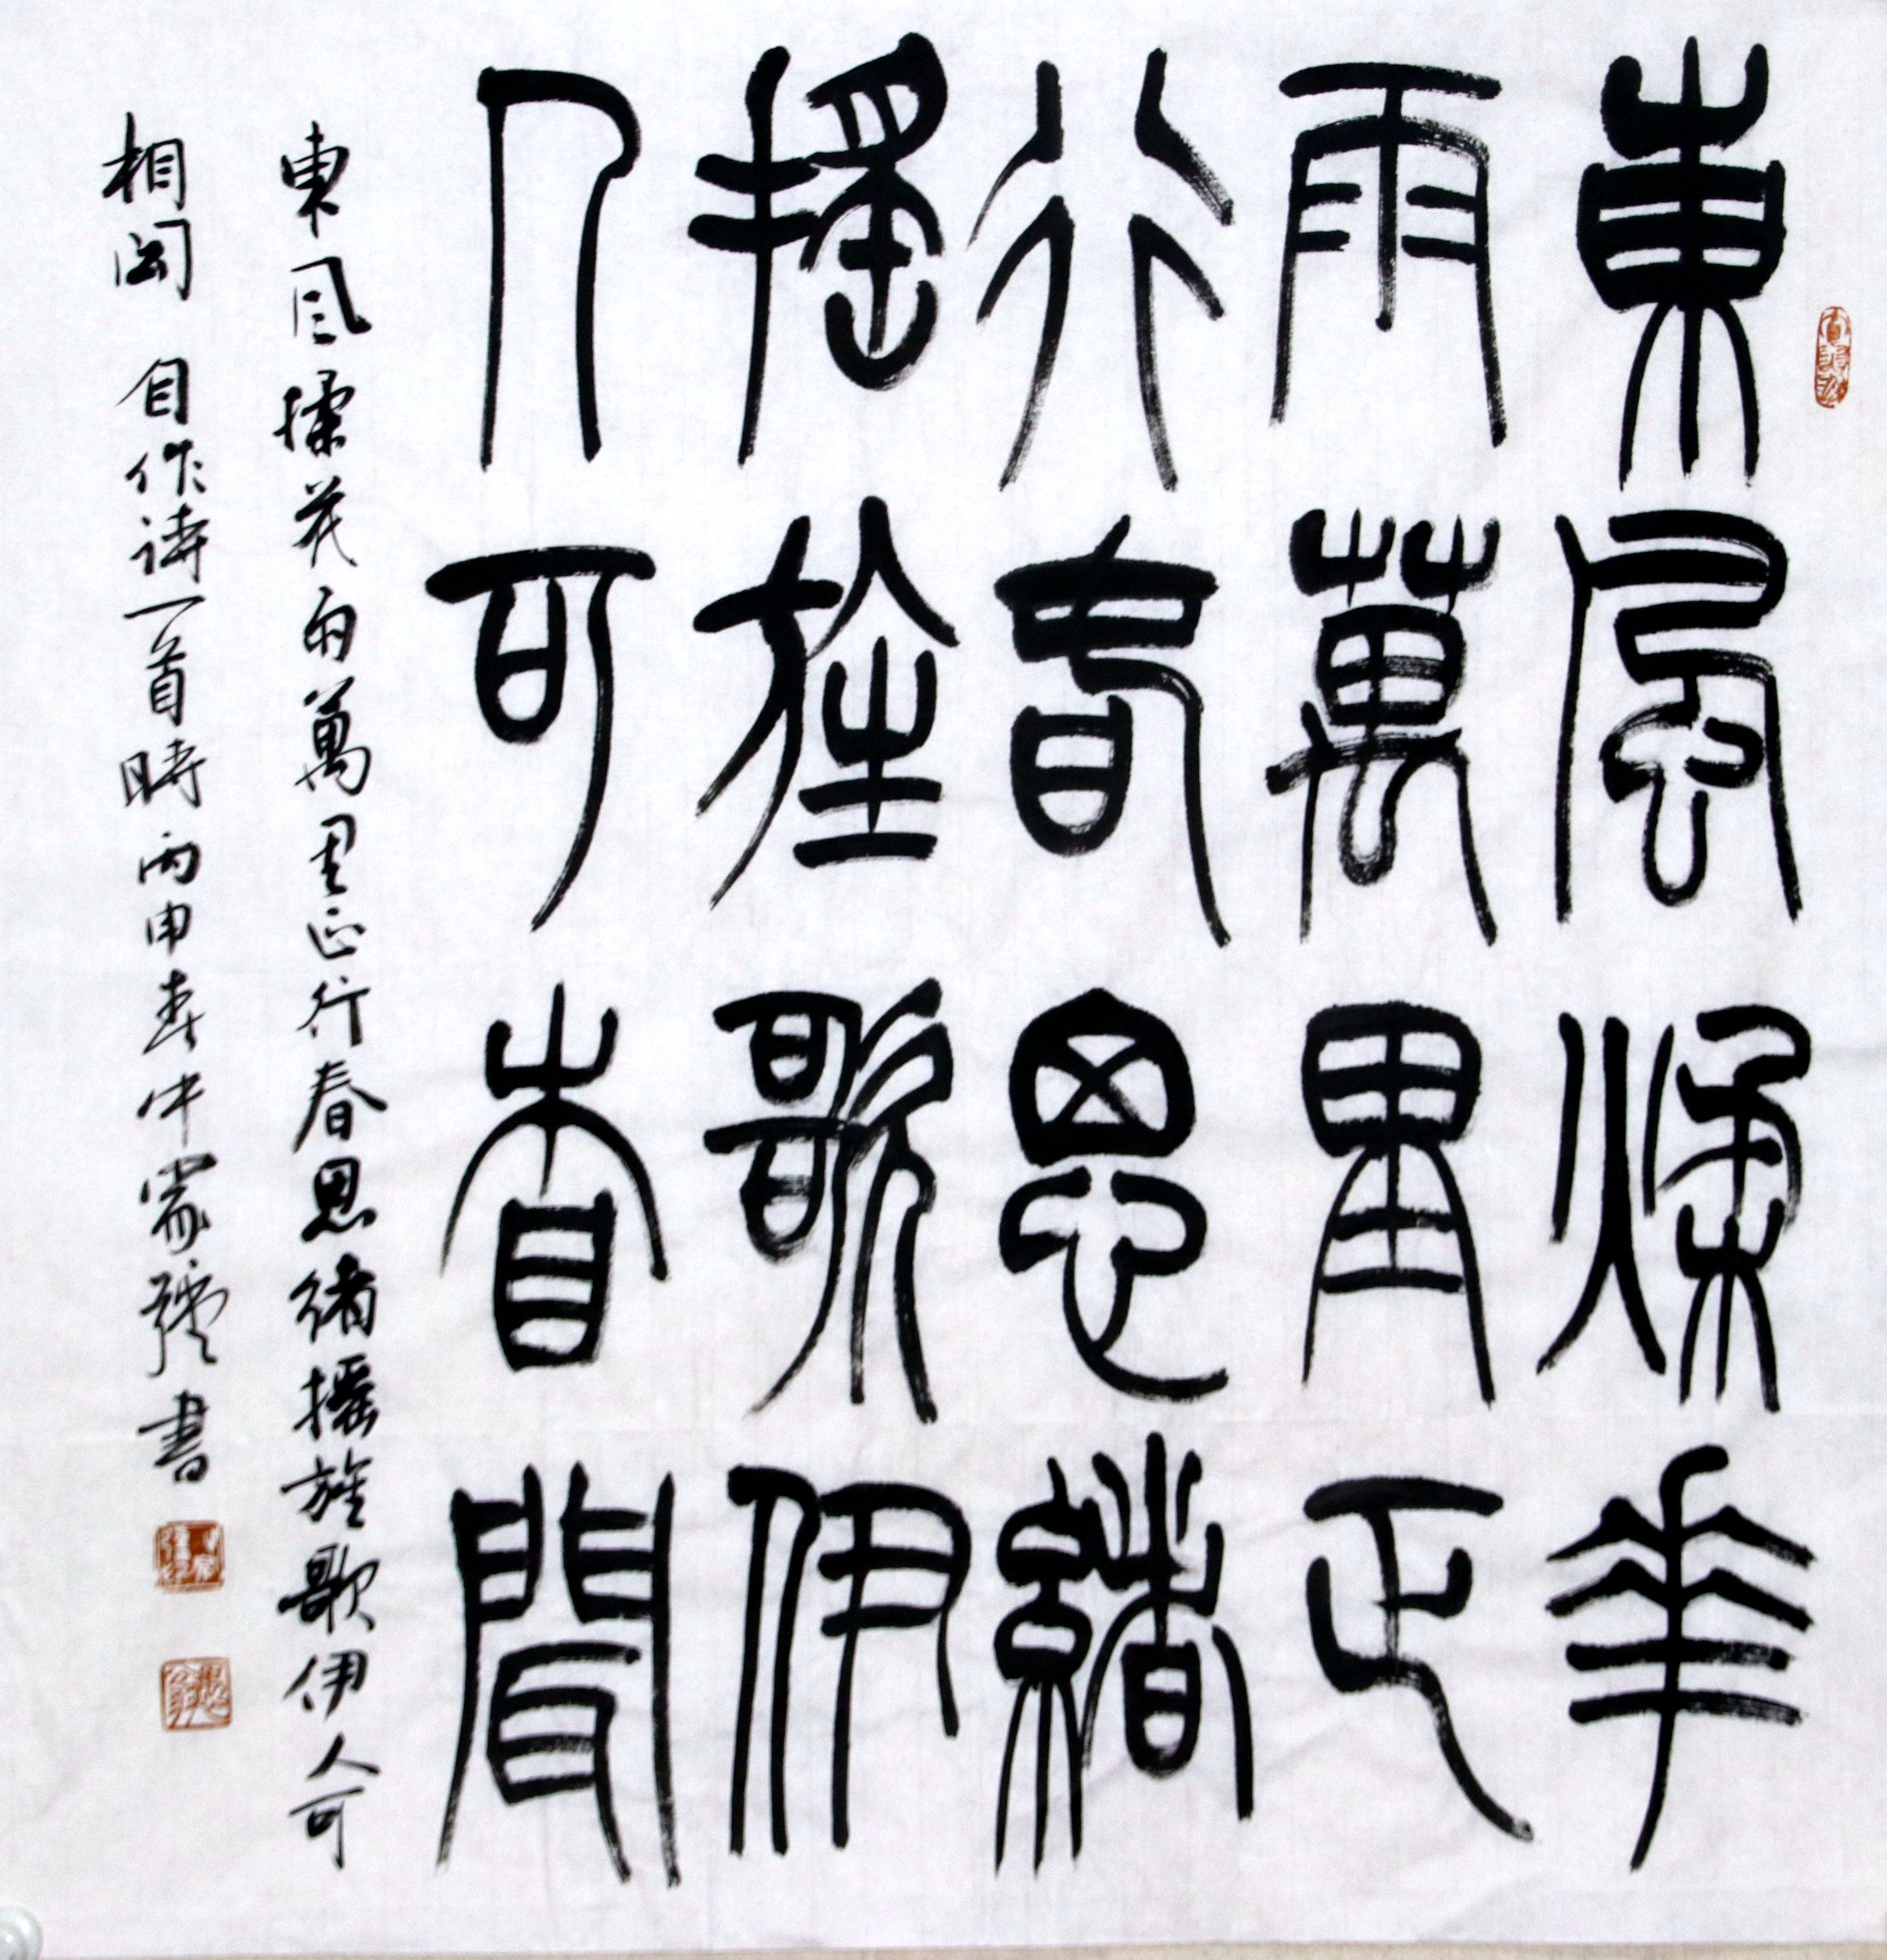 東風煣華
雨萬里正
行春思緒
搖旌歌伊
人可相聞
東風揉花雨萬里正行春思緒搖旌歌伊人可
相聞 自作詩一首時丙申春中書